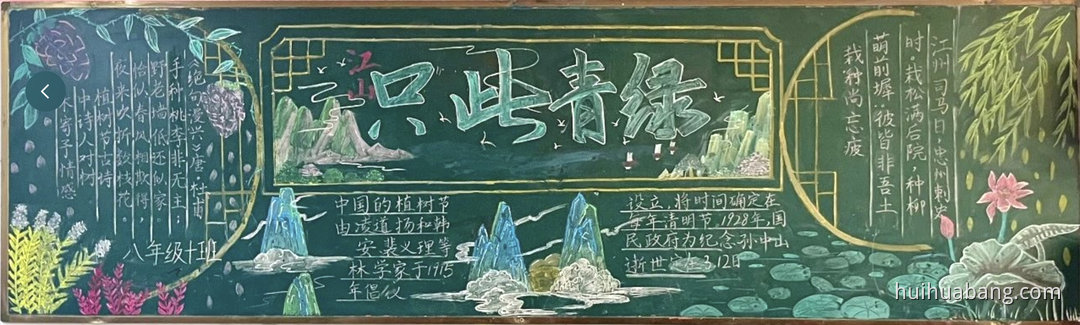 江山
只此青绿
江州司马日忠州刺史
时，栽松满后院，种柳
荫前墀，彼皆非吾土
栽种尚忘疲
《绝句漫兴》唐·杜甫
手种桃李非无主；
野老墙低还似家。
恰似春风相欺得，
夜来吹折数枝花。
植树节古诗
中诗人对树
木寄予情感
八年级十班
中国的植树节
由凌道扬和韩
安、裴义理等
林学家于1915
年倡仪
设立，将时间确定在
每年清明节，1928年，国
民政府为纪念孙中山
逝世定在3.12日
huihuabang.com